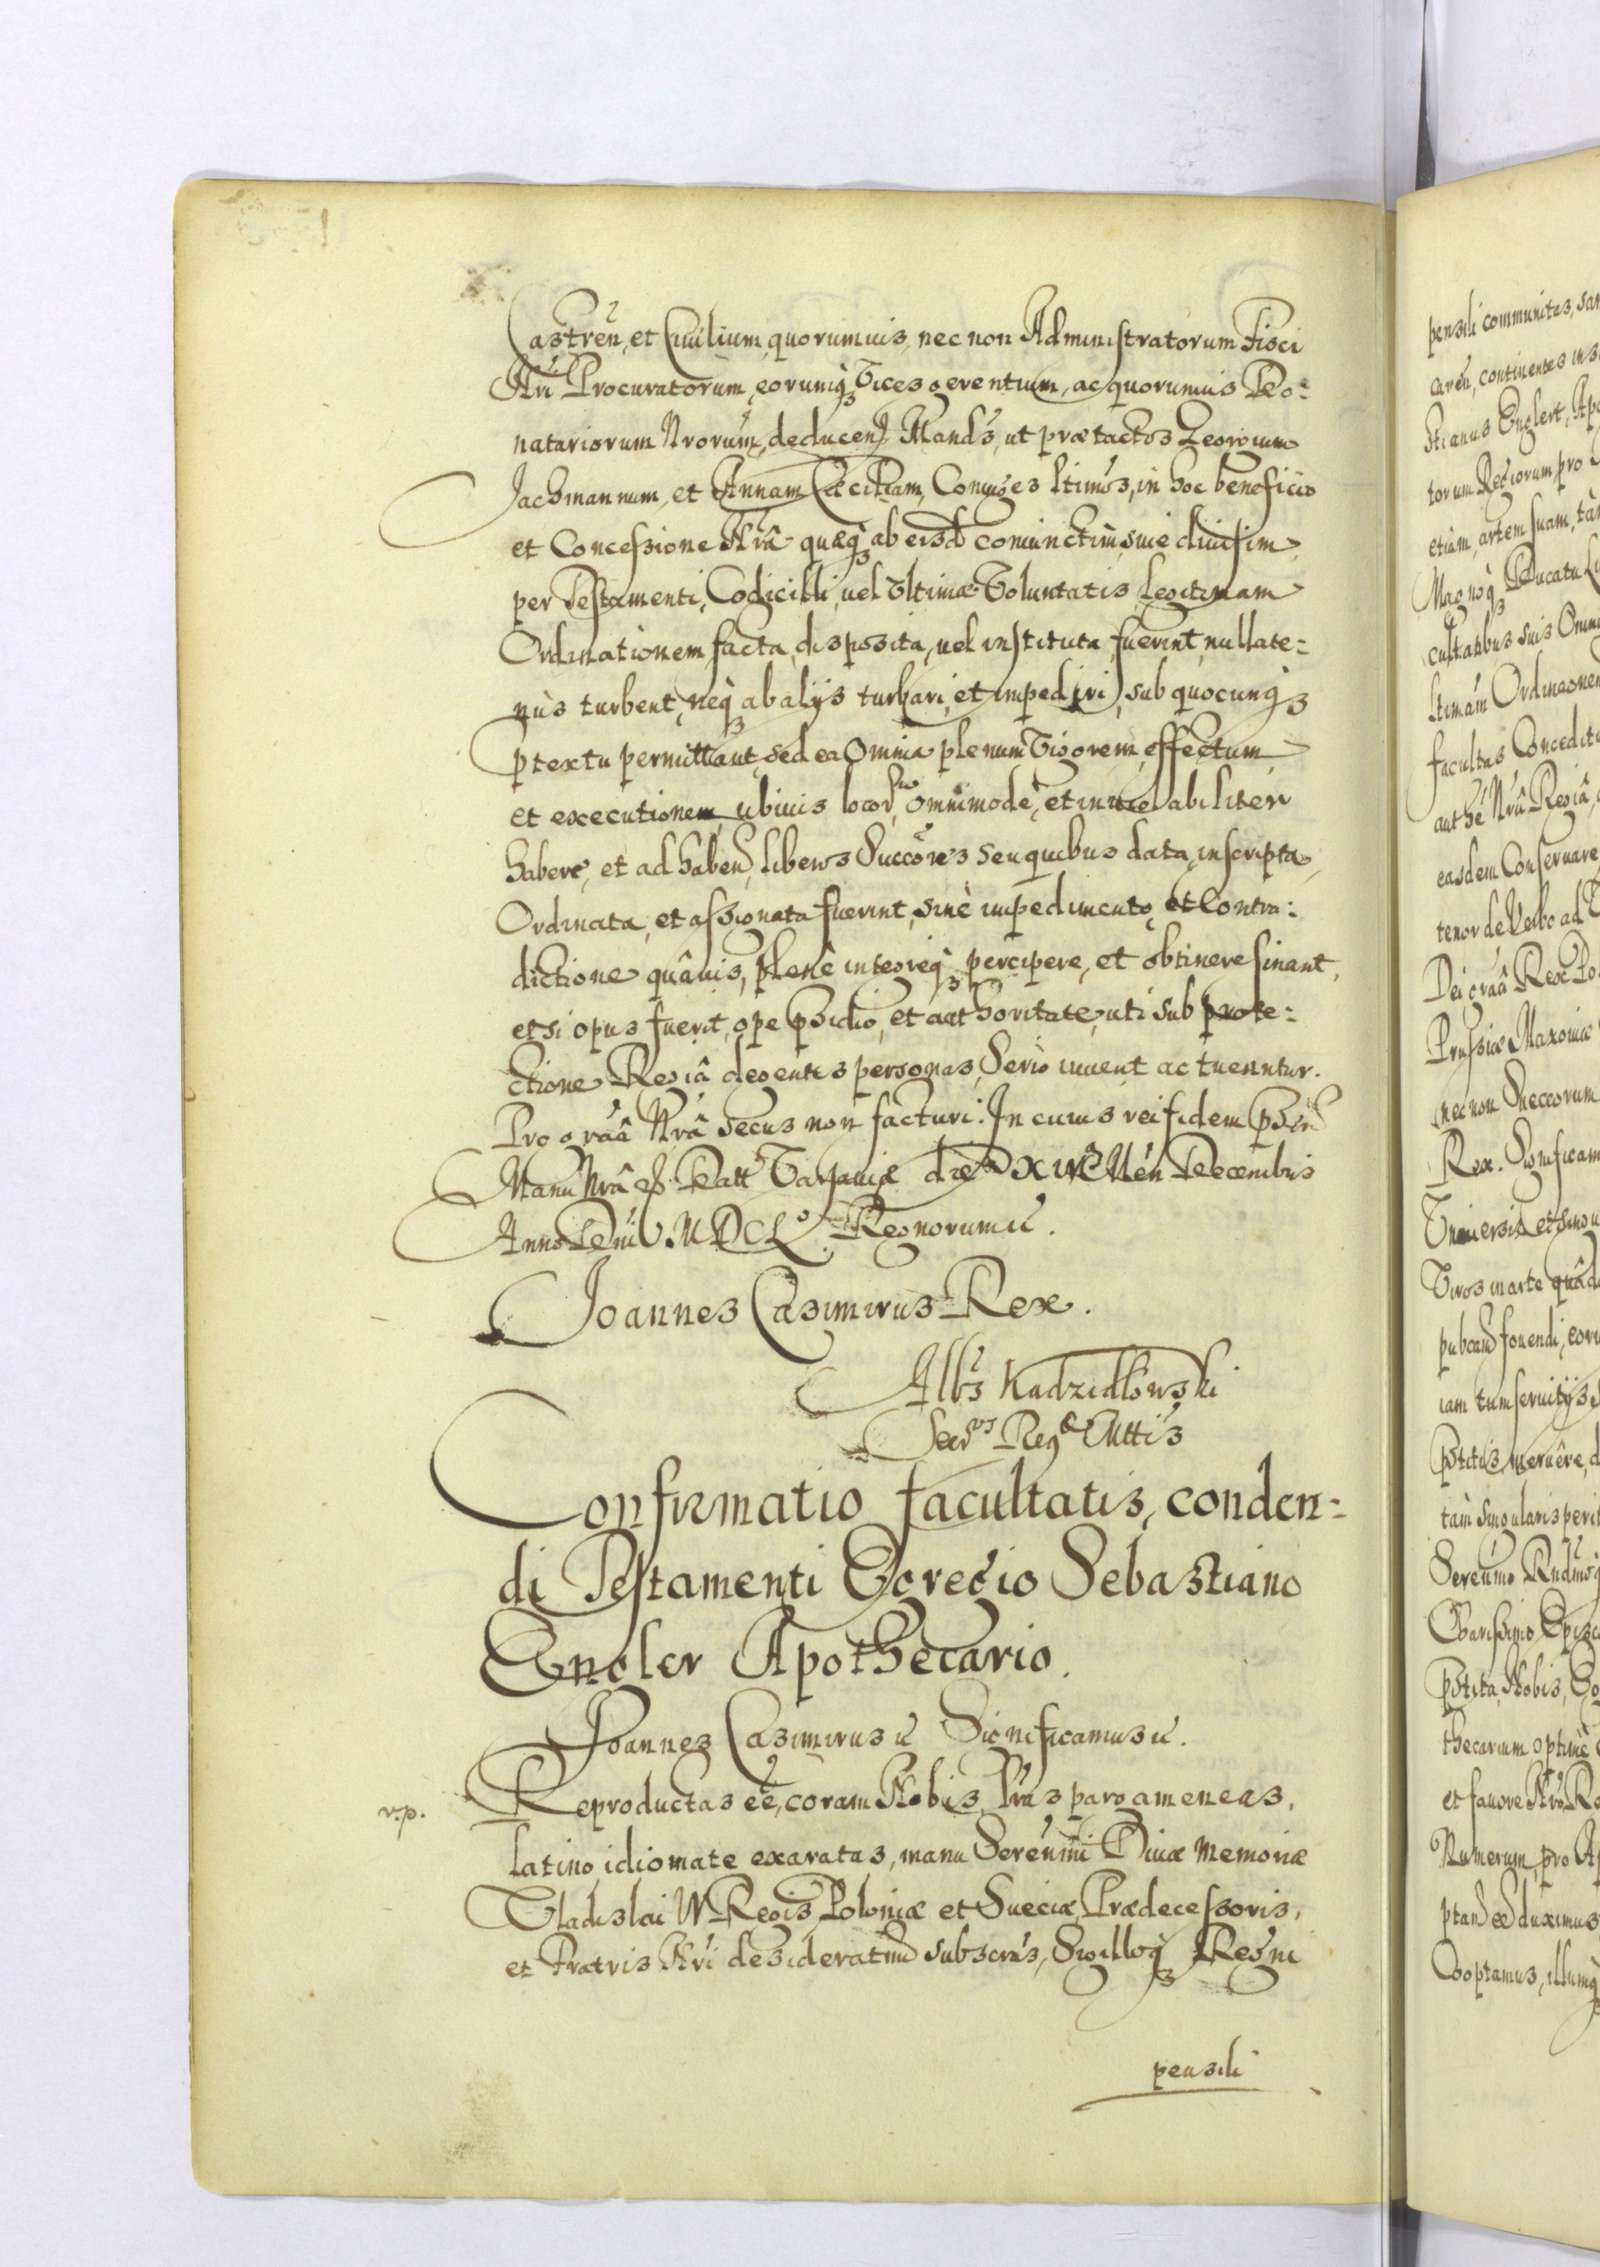 Castren, et Ciuilium, quorumuis, nec non Administratorum Fisci
Nri Procuratorum, eorumq3 Vices gerentium, ac quorumuis Do=
natariorum Nrorum, deducen Mands, ut prætactos Georgium
Jachmannum, et Annam Cæciliam, Coniuges ltimos, in hoc beneficio
et Concessione Nrâ quæq3 ab eisd coniunctim, siue diuisim
per Testamenti, Codicilli, uel Vltimæ Voluntatis, Legitimam
Ordinationem facta, disposita, uel instituta fuerint, nullate=
nùs turbent, neq3 ab alijs turbari, et impediri, sub quocunq3
ptextu permittant, sed ea Omnia plenum Vigorem, effectum
et executionem, ubiuis locor, omnimode, et inuiolabiliter
habere, et ad haben, liberos Succores seu quibus data, inscripta,
Ordinata, et assignata fuerint, sinè impedimento, et Contra=
dictione quâuis, plenè integreq3 percipere, et obtinere sinant,
et si opus fuerit, ope psidio, et authoritate, uti sub prote=
ctione Regiâ degentes personas, Serio iuuent ac tueantur.
Pro graâ Nrâ secus non facturi. In cuius rei fidem psen
Manu Nrâ & Datt Varsauiæ die XIV Men Decembris
Anno Dni MDCL Regnorum ic.
Joannes Casimirus Rex.
Albs Kadzidłowski
Secr Reg Mttis
Confirmatio facultatis, conden=
di Testamenti Egregio Sebastiano
Engler Apothecario.
Joannes Casimirus ic Significamus ic.
r.p. Reproductas eẽ, coram Nobis, lras pargameneas,
latino idiomate exaratas, manu Serenmi Diuæ Memoriæ
Vladislai IV Regis Poloniæ et Sueciæ, Prædecessoris,
et Fratris Nri desideratmi subscras, Sigilloq3 Regni
pensili
pensili communitas, san
caren, continentes in s
stianus Englert, Apo
torum Regiorum pro
etiam, artem suam, tàm
Magnoq3 Ducatu Li
cultatibus suis Omni
ltimam Ordinaonem
facultas Conceditu
authe Nrâ Regiâ,
easdem Conseruare,
tenor de Verbo ad
Dei graâ Rex Po
Prussiæ Maxouiæ
nec non Sueccorum
Rex. Significam
Vniersis et singu
Viros in arte quâd
pubcand fouendi, eoru
iam tum seruitijs
pstitis, meruêre, d
tàm singularis perit
Serenmo Rndmoq
Charissimo Episc
pstita, Nobis,
thecarium optimè
et fauore Nro
Numerum, pro Ap
ptand & duximus
Cooptamus, illumq